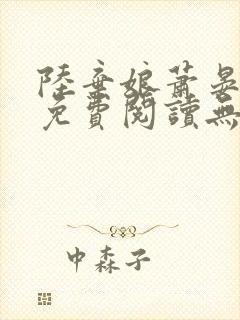 陸棄娘蕭晏
免費閱讀無
中森子